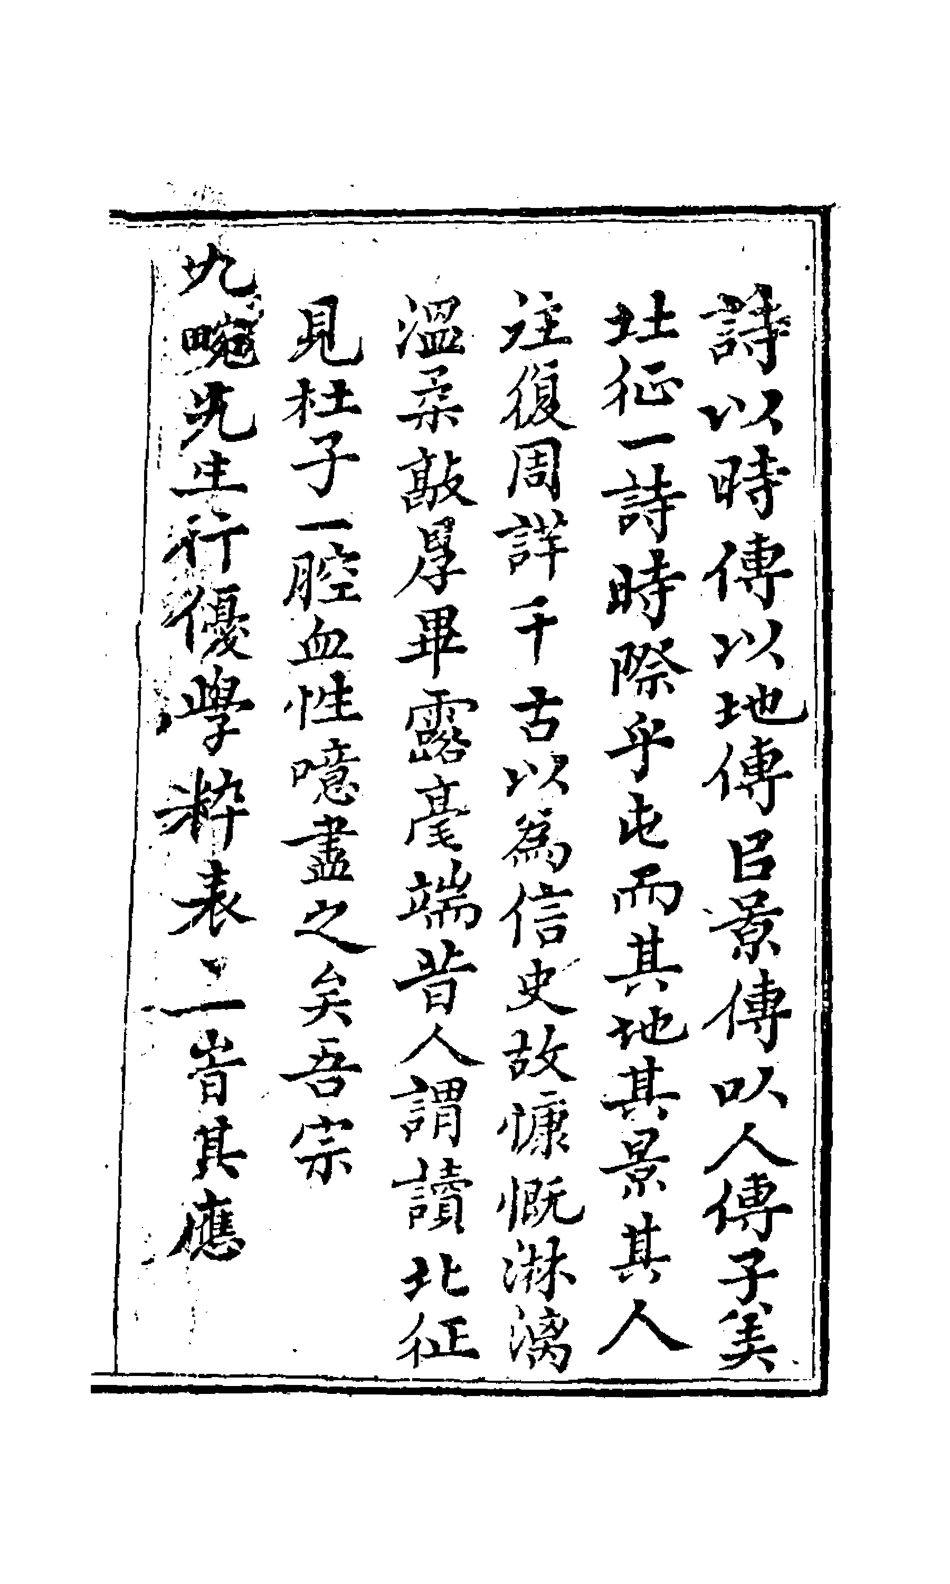 詩以時傳以地傳㠯景傳以人傳子美
北征一詩時際乎屯而其地其景其人
往復周詳千古以為信史故慷慨淋漓
溫柔敦厚畢露毫端昔人謂讀北征
見杜子一腔血性噫盡之矣吾宗
九畹先生行優學粹表二峕其應